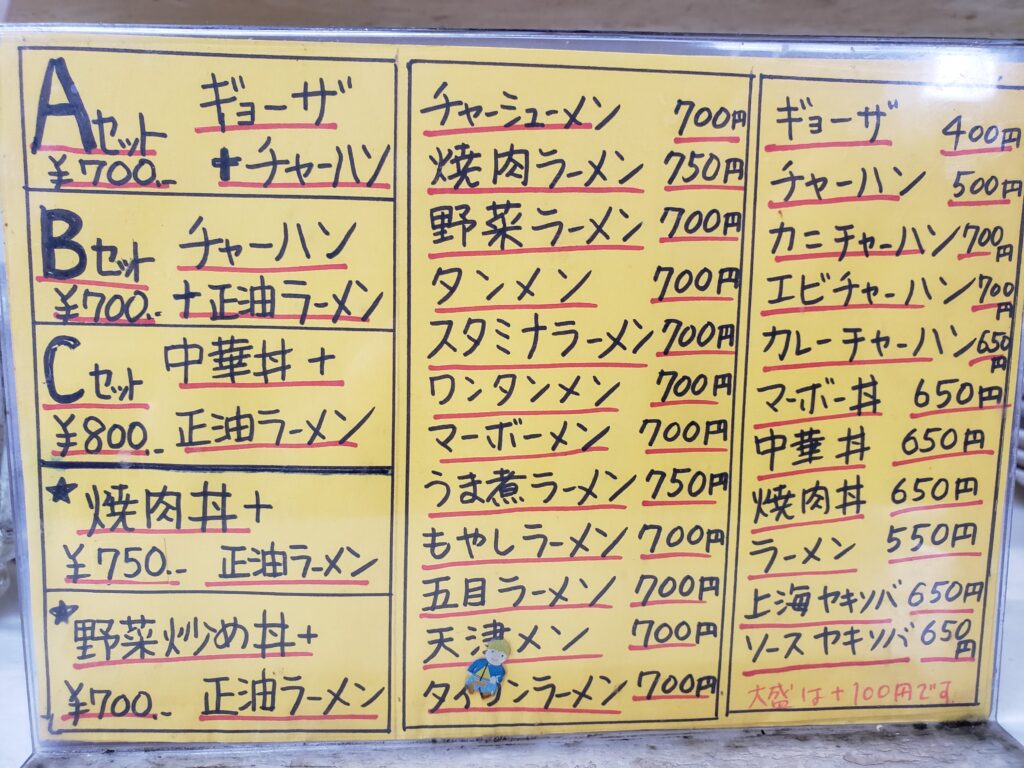 Aセット ギョーザ
¥700.- +チャーハン
Bセット チャーハン
¥700.- +正油ラーメン
Cセット 中華丼+
¥800.- 正油ラーメン
★焼肉丼+
¥750.- 正油ラーメン
★野菜炒め丼+
¥700.- 正油ラーメン
チャーシューメン 700円
焼肉ラーメン 750円
野菜ラーメン 700円
タンメン 700円
スタミナラーメン 700円
ワンタンメン 700円
マーボーメン 700円
うま煮ラーメン 750円
もやしラーメン 700円
五目ラーメン 700円
天津メン 700円
ラーメン 700円
ギョーザ 400円
チャーハン 500円
カニチャーハン 700円
エビチャーハン 700円
カレーチャーハン 650円
マーボー丼 650円
中華丼 650円
焼肉丼 650円
ラーメン 550円
上海ヤキソバ 650円
ソースヤキソバ 650円
大盛は+100円です